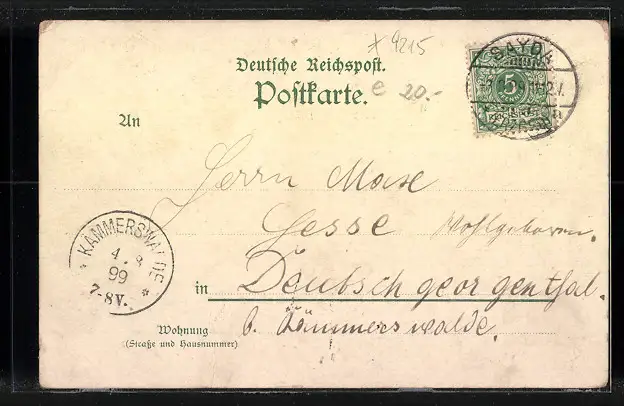 * 9215
Deutsche Reichspost.
Postkarte.
e 20.-
SAYDA
5
An
Herrn Max
Hesse Wohlgeboren.
KÄMMERSWALDE
4. 9.
99
7-8V.
in Deutschgeorgenthal.
b. Kämmerswalde.
Wohnung
(Straße und Hausnummer)